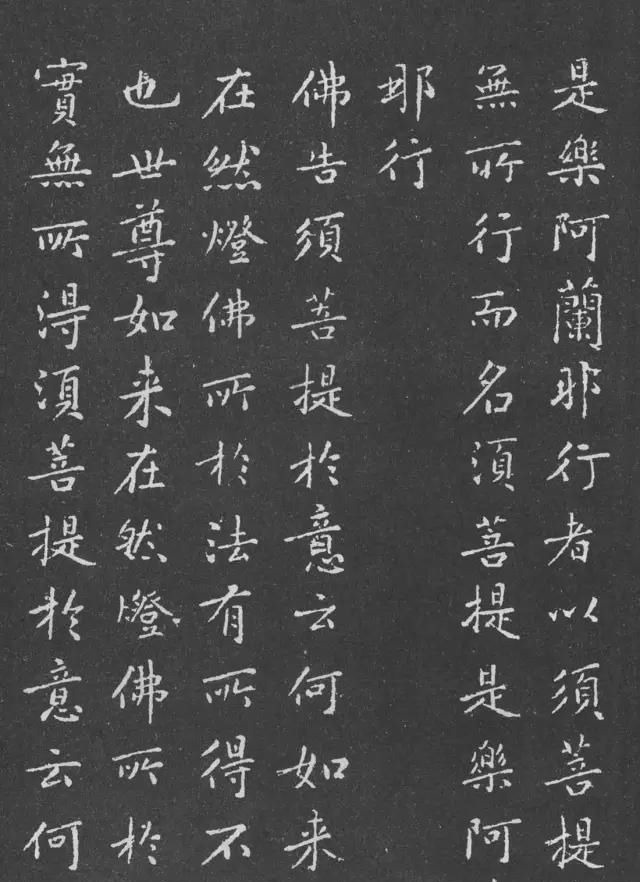 是樂阿蘭那行者以須菩提
無所行而名須菩提是樂阿
耶行
佛告須菩提於意云何如来
在然燈佛所於法有所得不
也世尊如来在然燈佛所於
實無所得須菩提於意云何